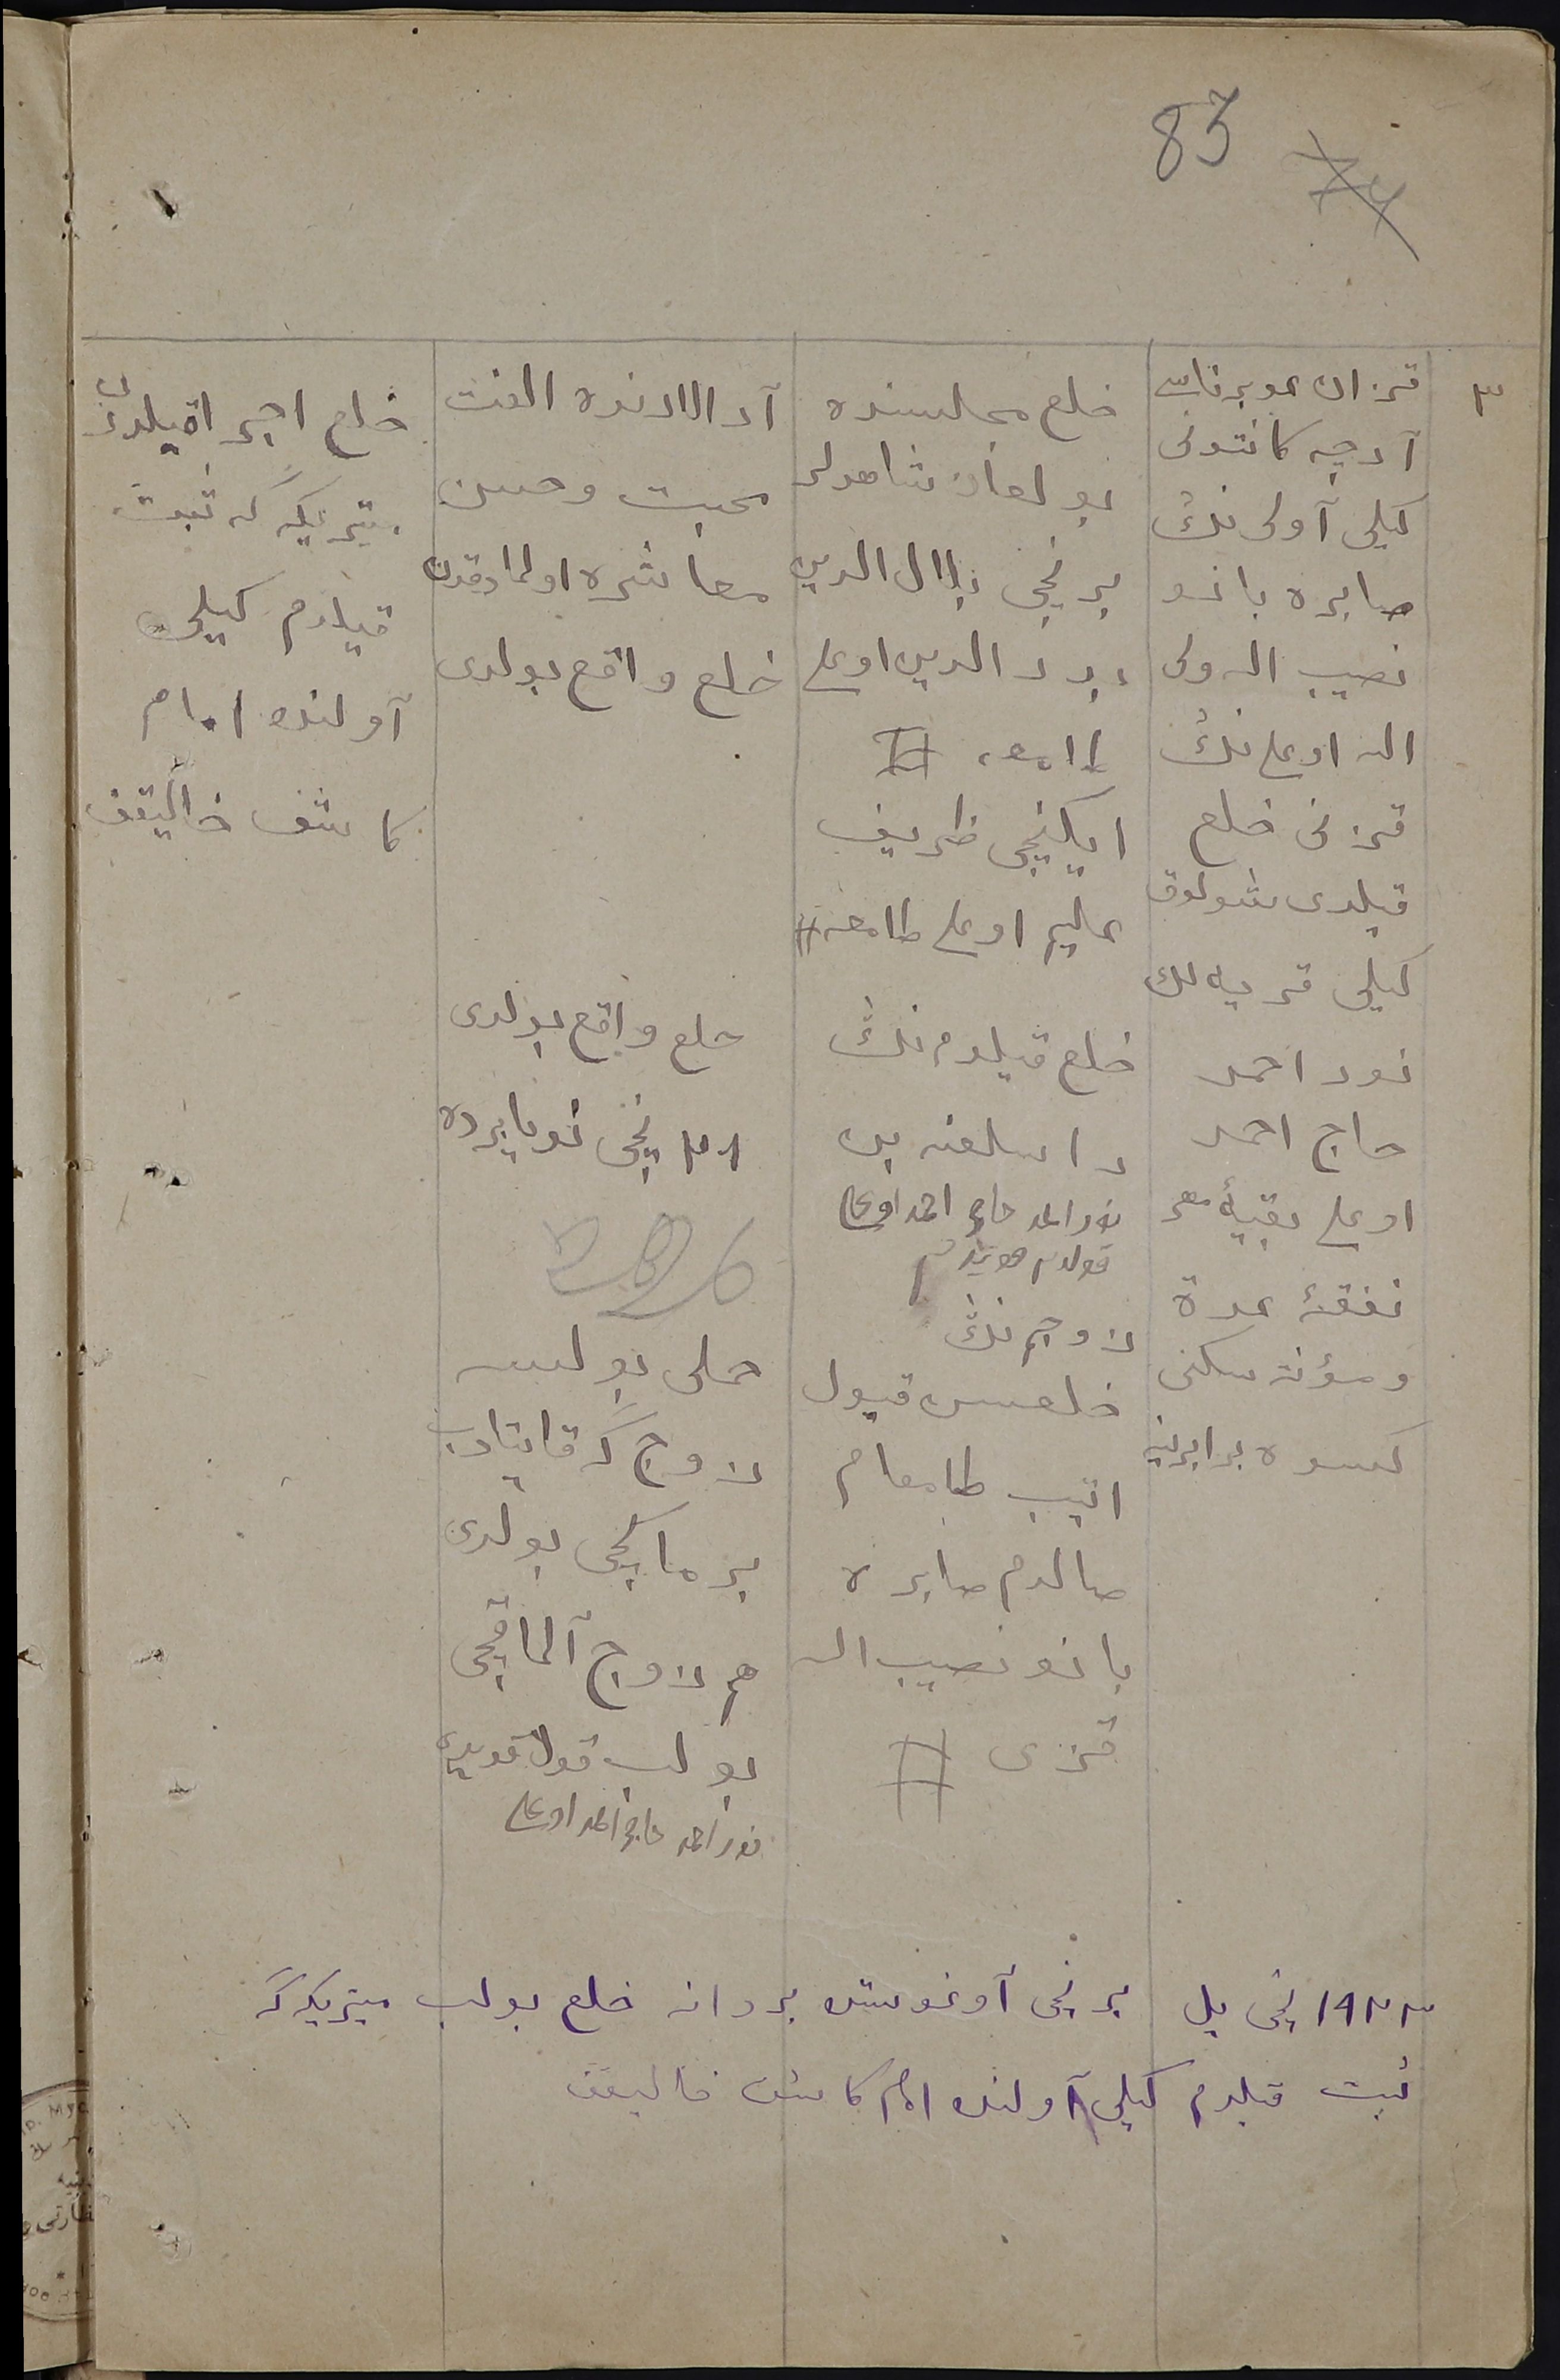 83
74
٣
قزان عوبرناسی
آرچه کانتونی
کیلی آولی ننڭ
صابره بانو
نصیب الله ولی
الله اوغلی ننڭ
قزنی خلع
قیلدی شولوق
کیلی قریه لك
نور احمد
حاج احمد
اوغلی بقیهٔ مهر
نفقهٔ عدة
ومؤنة سکنی
کسوه برابرینه
خلع مجلسنده
بولغان شاهدلر
برنچی بلال الدین
بدر الدین اوغلی
ایکنچی ظریف
علیم اوغلی طامغه
خلع قیلدم ننڭ
نور احمد حاج احمد اوغلی
قولدم قویدم
زوجم ننڭ
خلعسن قبول
ایتیب طامغام
صالدم صابره
بانو نصیب الله
قزی
آرالارنده الفت
محبت وحسن
معاشره اولمادقدن
خلع واقع بولدی
خلع واقع بولدی
٢١ نچی نویابرده
حملی بولسه
زوج گه قایتاریب
برماکچی بولدی
هم زوج آلماقچی
بولب قول قویدی
نور احمد حاج احمد اوغلی
خلع اجرا قیلدی
میتریکه گه ثبت
قیلدم کیلی
آولنده امام
کاشف خالیقف
١٩٢٣ نچی یل برنچی آوغوستده بردانه خلع بولب میتریکه گه
ثبت قیلدم کیلی آولنده امام کاشف خالیقف